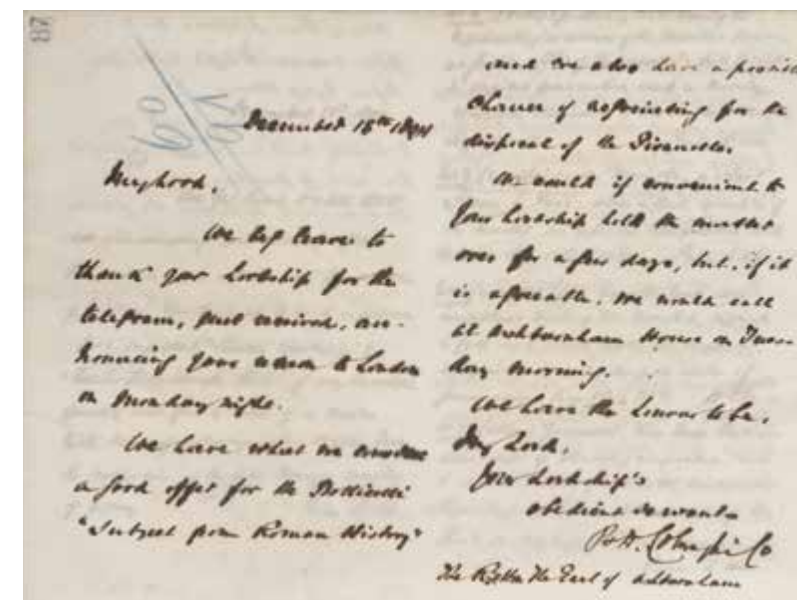 87
60
December 15th 1894
My Lord,
We beg leave to
thank your Lordship for the
telegram, just received, an-
nouncing your return to London
on Monday night.
We have what we consider
a good offer for the Botticelli
"Subject from Roman History"
and we also have a possible
chance of negotiating for the
disposal of the Pisanello.
We could if convenient to
Your Lordship hold the matter
over for a few days, but, if it
is agreeable, we would call
at Ashburnham House on Tues-
day morning.
We have the honour to be,
My Lord,
Your Lordship's
obedient servants
P. & D. Colnaghi & Co
The Rt Hon. The Earl of Ashburnham